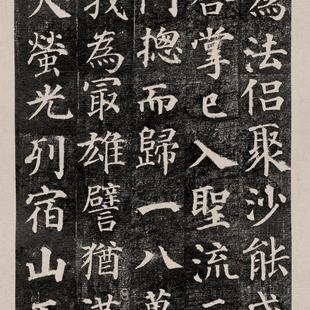 為法侶聚沙能成
合掌已入聖流
門摠而歸一八萬
我為冣雄譬猶滿
天螢光列宿山